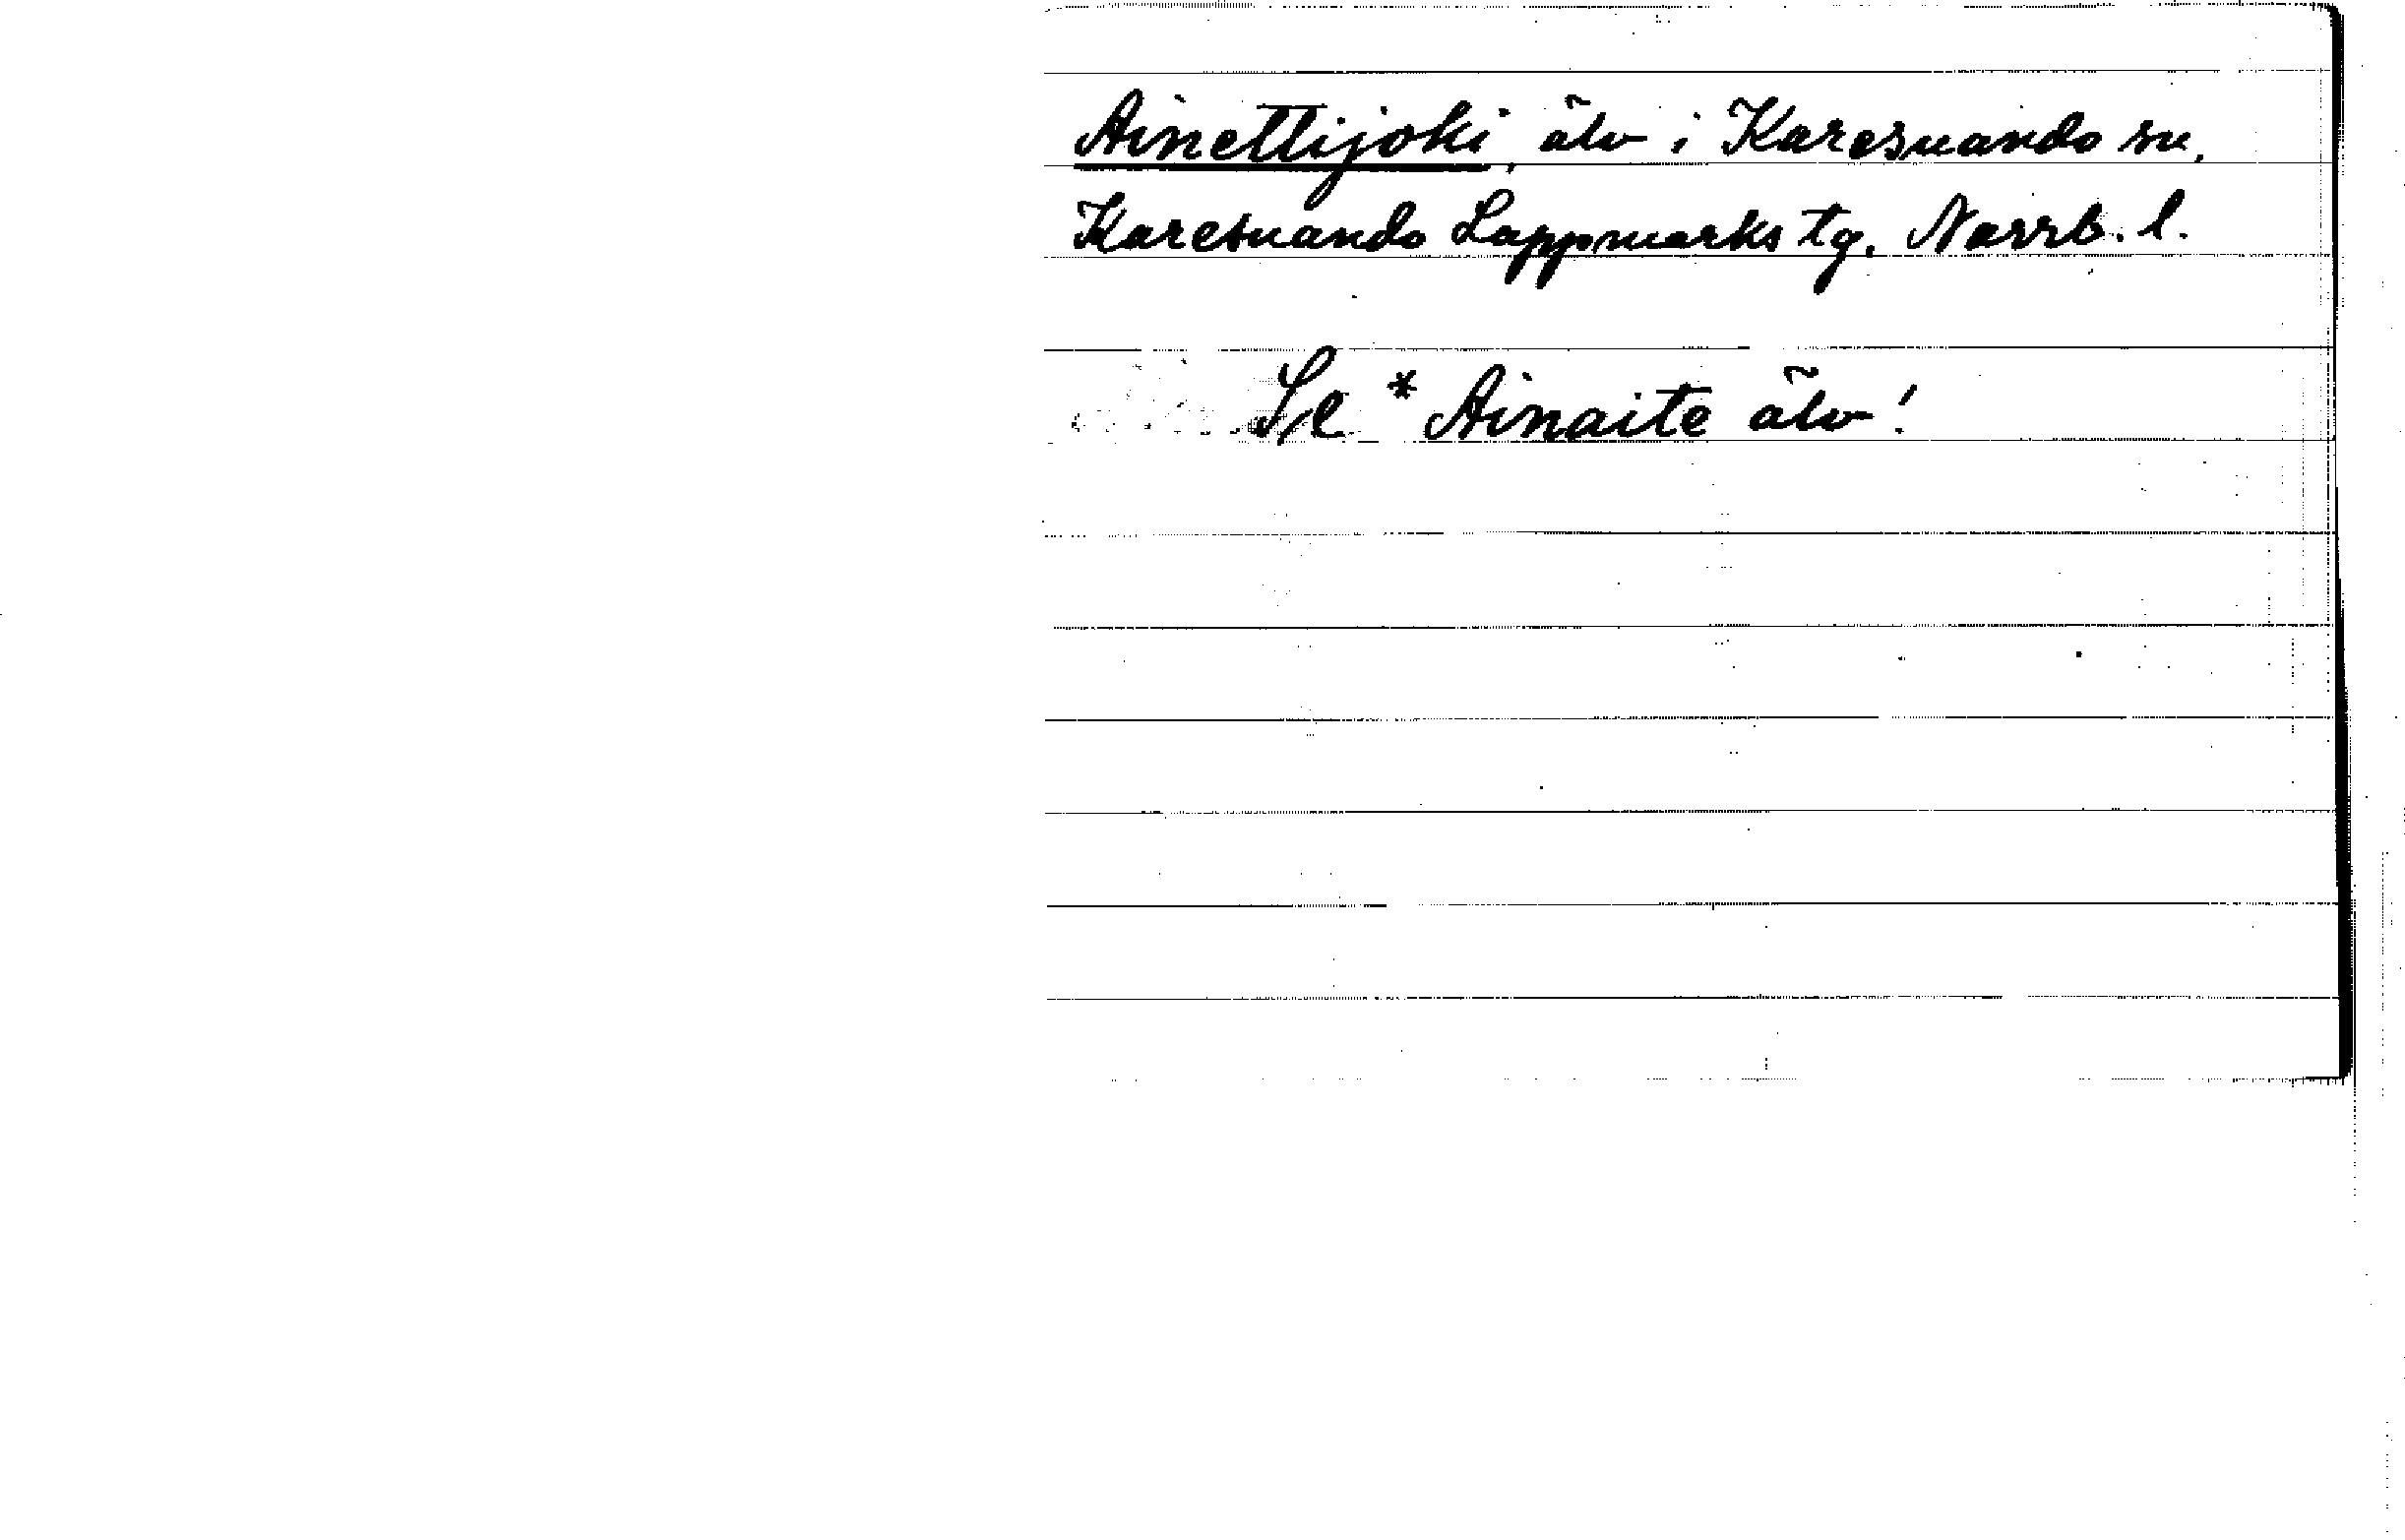 Ainettijoki, älv i Karesuando sn,
Karesuando Lappmarks tg, Norrb. l.
Se * Ainaite älv!